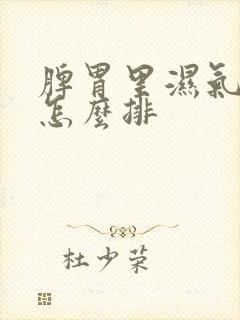 脾胃里濕氣
怎麼排
杜少荣